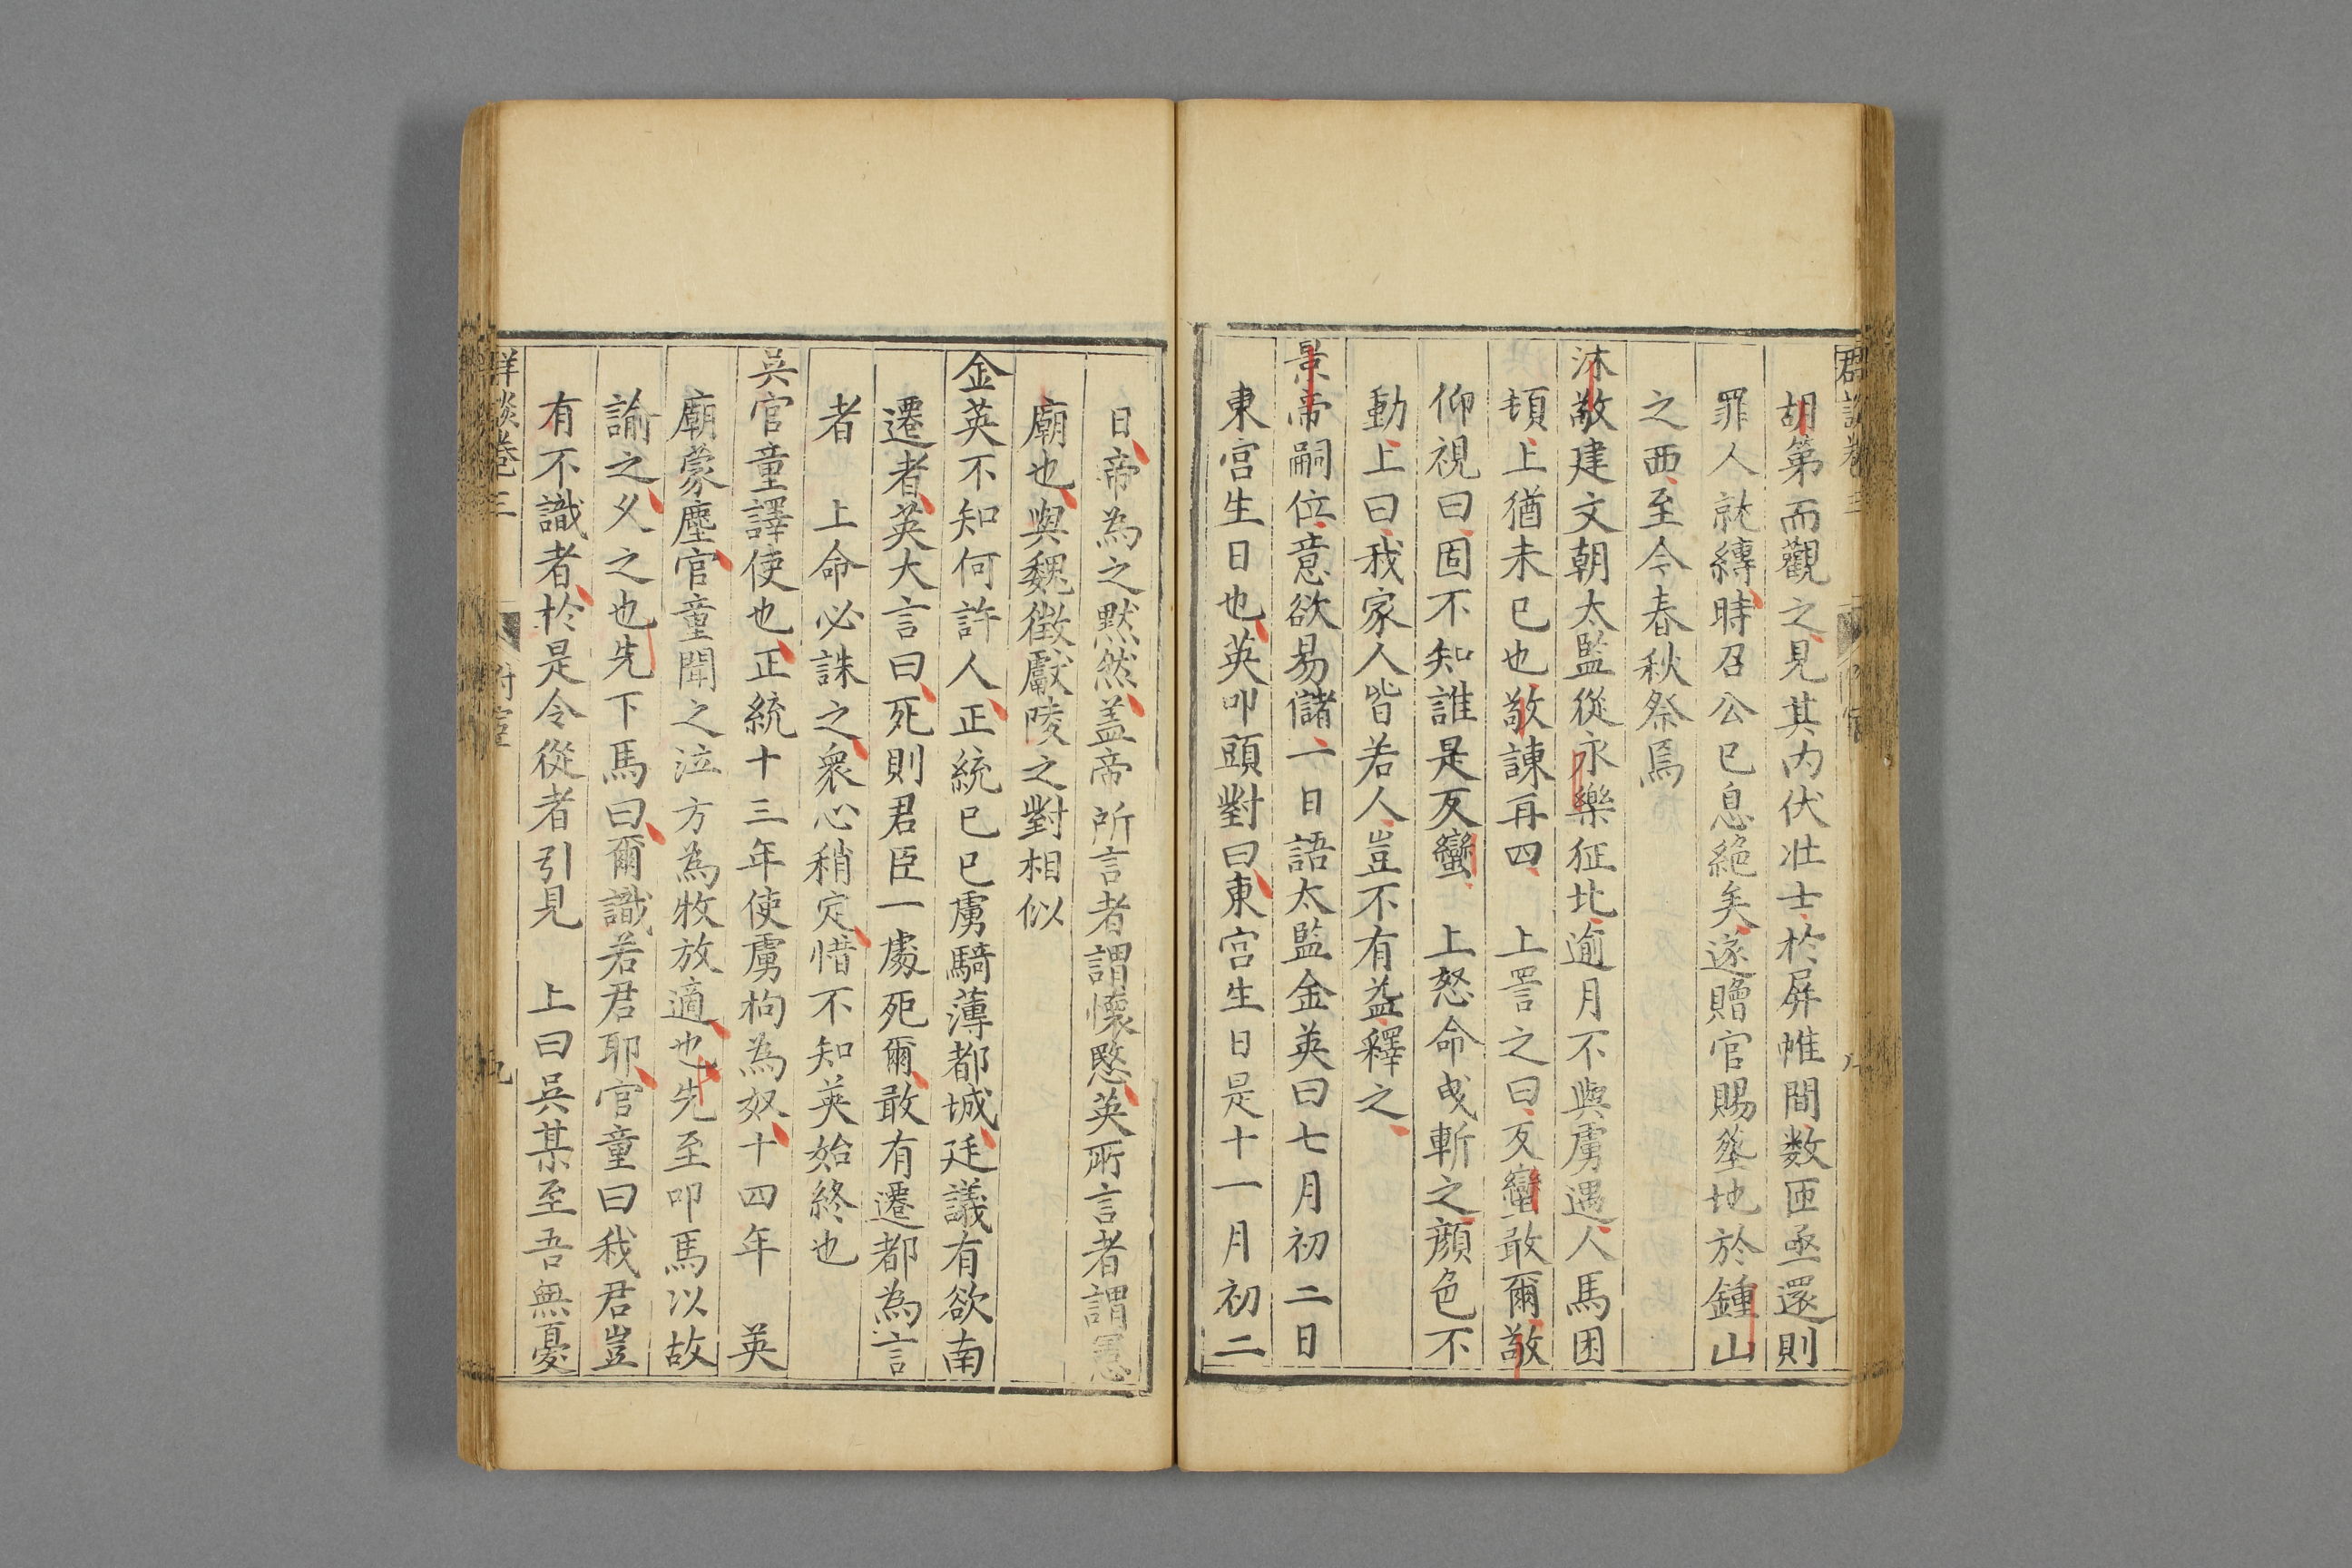 胡第而觀之見其內伏壯士於屏帷間数匝亟還則
罪人就縳時召公已息絕矣遂贈官賜塋地於鍾山
之西至今春秋祭焉
沐敬建文朝太監從永樂征北逾月不與虜遇人馬困
頓上猶未已也敬諌再四 上詈之曰反蠻敢爾敬
仰視曰固不知誰是反蠻 上怒命曵斬之顔色不
動上曰我家人皆若人豈不有益釋之
景帝嗣位意欲易儲一日語太監金英曰七月初二日
東宫生日也英叩頭對曰東宫生日是十一月初二
日帝為之默然盖帝所言者謂懷愍英所言者謂憲
廟也與魏徵獻陵之對相似
金英不知何許人正統已已虜騎薄都城廷議有欲南
遷者英大言曰死則君臣一處死爾敢有遷都為言
者 上命必誅之衆心稍定惜不知英始終也
吳官童譯使也正統十三年使虜枸為奴十四年 英
廟蒙塵官童聞之泣方為牧放適也先至叩馬以故
諭之乆之也先下馬曰爾識若君耶官童曰我君豈
有不識者於是令從者引見 上曰吳某至吾無憂